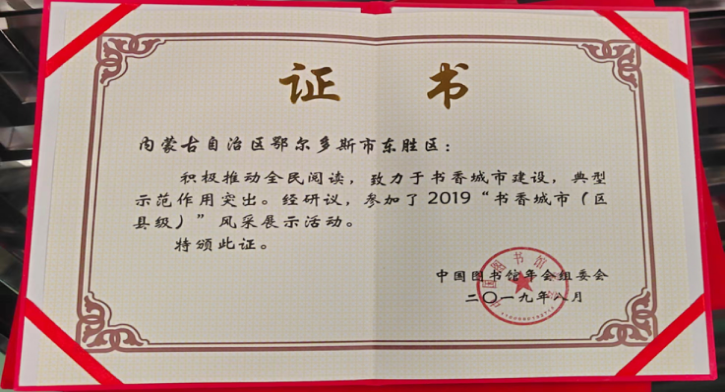 证 书
内蒙古自治区鄂尔多斯市东胜区：
积极推动全民阅读，致力于书香城市建设，典型
示范作用突出。经研议，参加了2019“书香城市（区
县级）”风采展示活动。
特颁此证。
中国图书馆年会组委会
二〇一九年八月